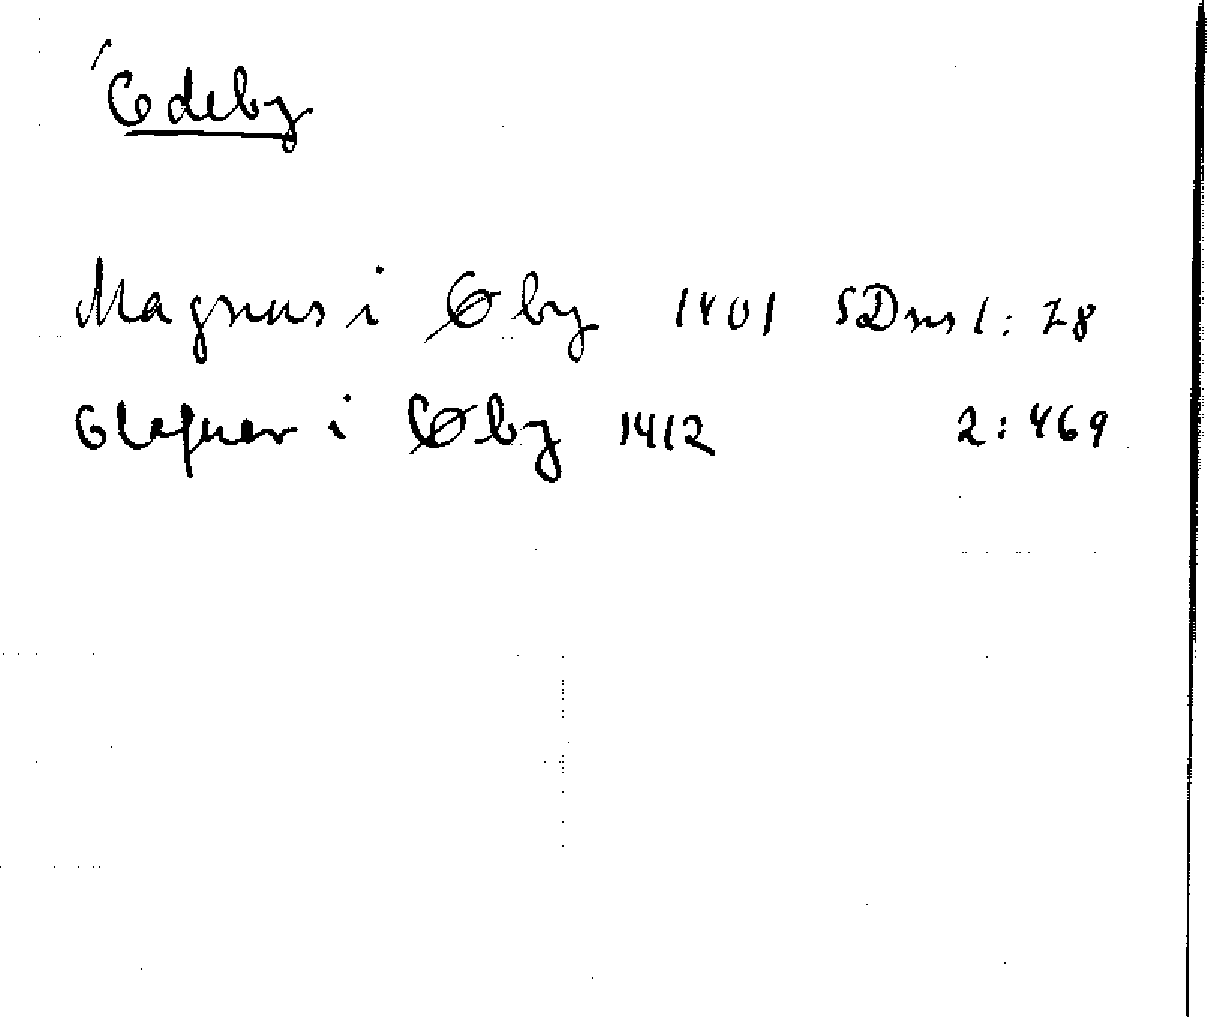 Ödeby
Magnus i Øby 1401 SDns 1: 28
Olafuer i Øby 1412 2: 469